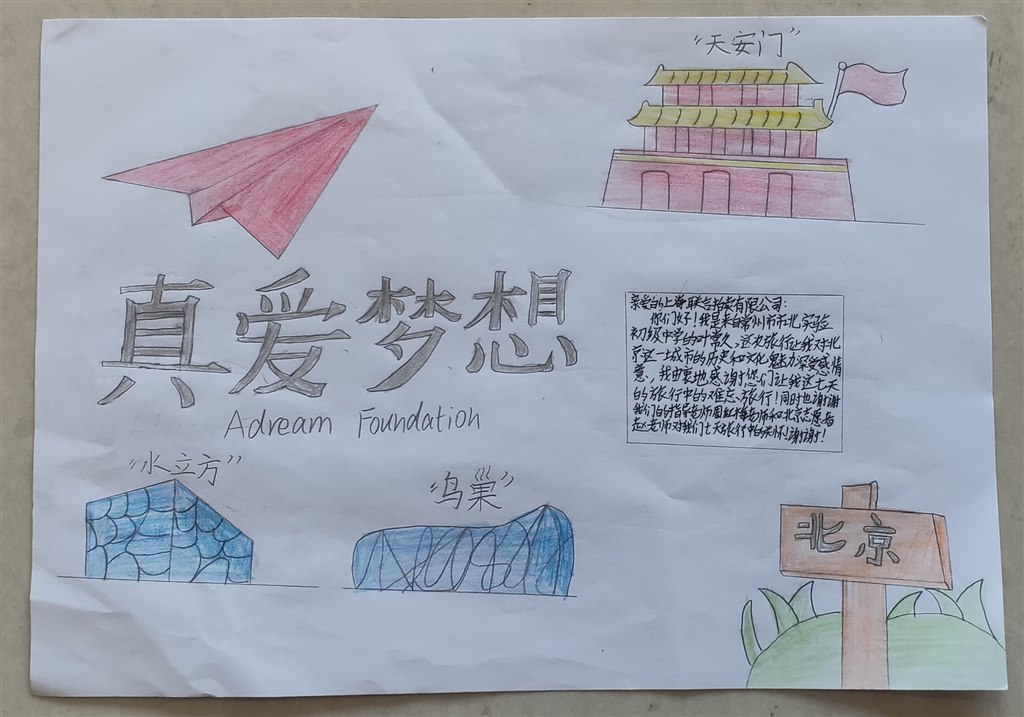 “天安门”
真爱梦想
Adream Foundation
亲爱的上海联合拍卖有限公司：
你们好！我是来自常州市市北实验
初级中学的叶常久，这次旅行让我对北
京这一城市的历史和文化魅力深受感情
意，我由衷地感谢您们让我这七天
的旅行中的难忘旅行！同时也谢谢
我们的指导老师周红梅老师和北京志愿者
赵老师对我们七天旅行中的关怀！谢谢！
“水立方”
“鸟巢”
北京